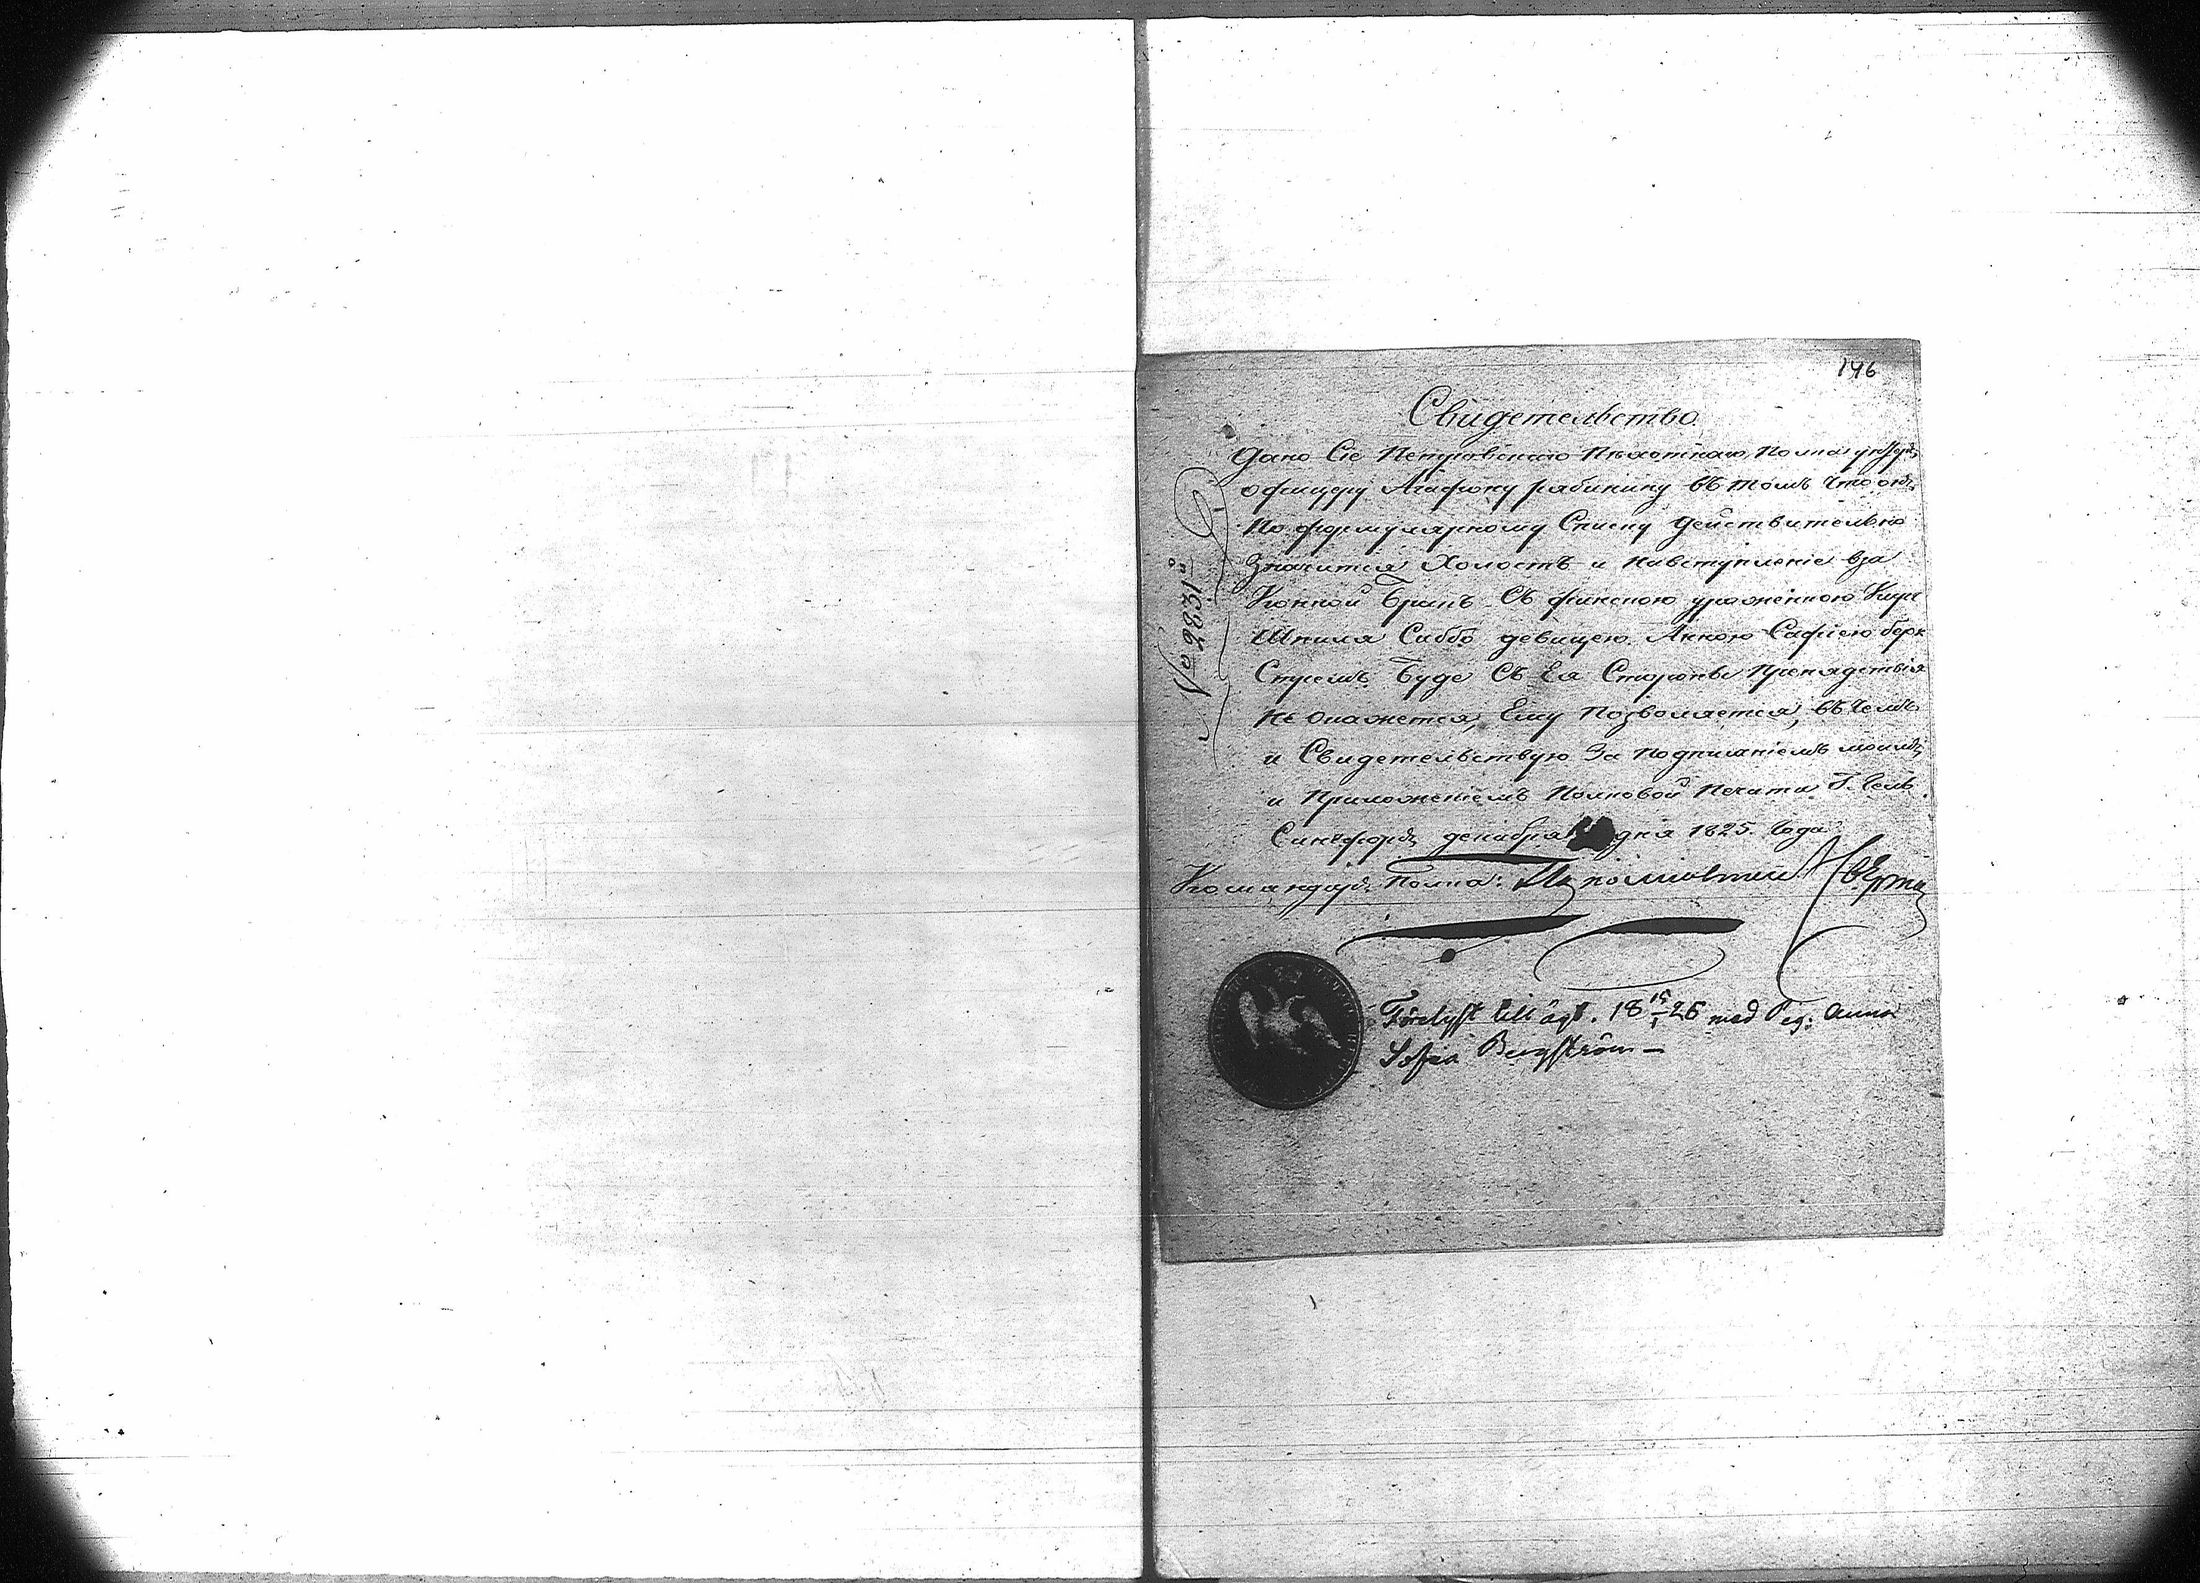 146
Свидетельство
Дано Сіе Петровскаго Пѣхотнаго Полка унтеръ
офицеру Агафону рябинину въ томъ что онъ
По формулярному Списку действительно
Значится Холостъ и навступленіе вза
Конной Бракъ Съ финскою уроженкою Кирх
Шпиля Сиббо девицею Анною Сафіею берх
Стремъ Буде Съ Ея Стороны Препядствія
не окажется, Ему позволяется, въ чемъ
и Свидетельствую За подписаніемъ моимъ
и Приложеніемъ Полковой Печати Г. Гель
Сингфорсъ декабря дня 1825. Года
Командиръ Полка:
№ 2831й
Förelyst till ägt. 18 15/1 26 med Pig: Anna
Sofia Bergström —